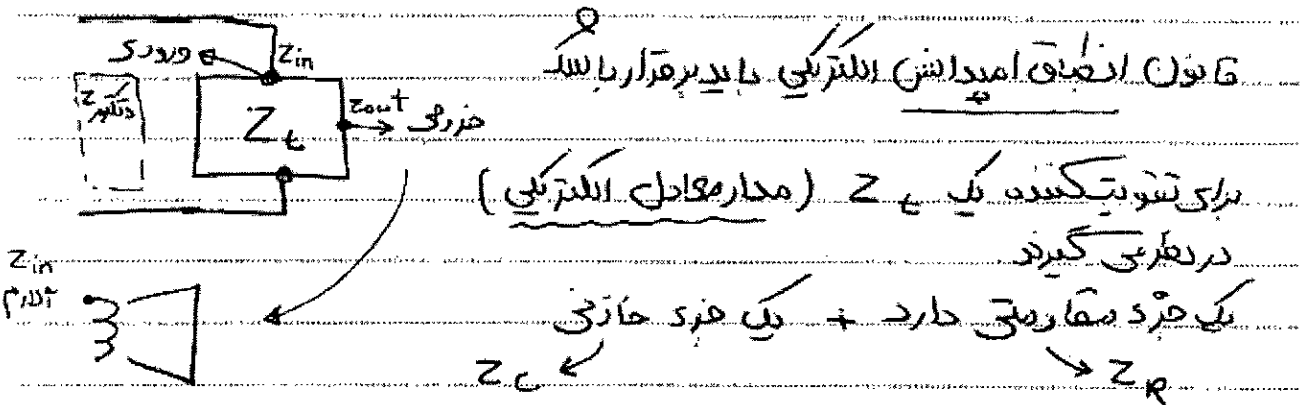 قانون انطباق امپدانس الکتریکی باید برقرار باشد
برای تقویت کننده یک Z t (مدار معادل الکتریکی)
در نظر می گیرند
یک جزء مقاومتی دارد + یک جزء خازنی
Z R
Z C
Z in
ورودی
Z دتکتور
Z t
Z out
خروجی
Z in
آلارم